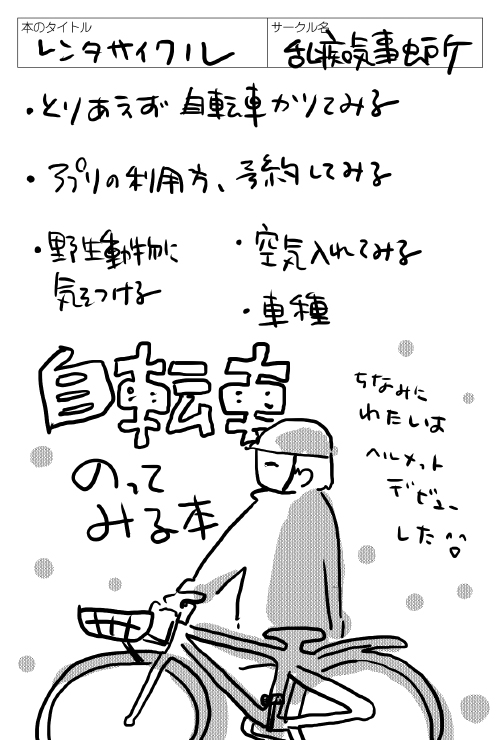 本のタイトル
サークル名
レンタサイクル
・とりあえず 自転車かりてみる
・アプリの利用方、予約してみる
・野生動物に
気をつける
・空気入れてみる
・車種
自転車
のって
みる本
ちなみに
わたしは
ヘルメット
デビュー
した